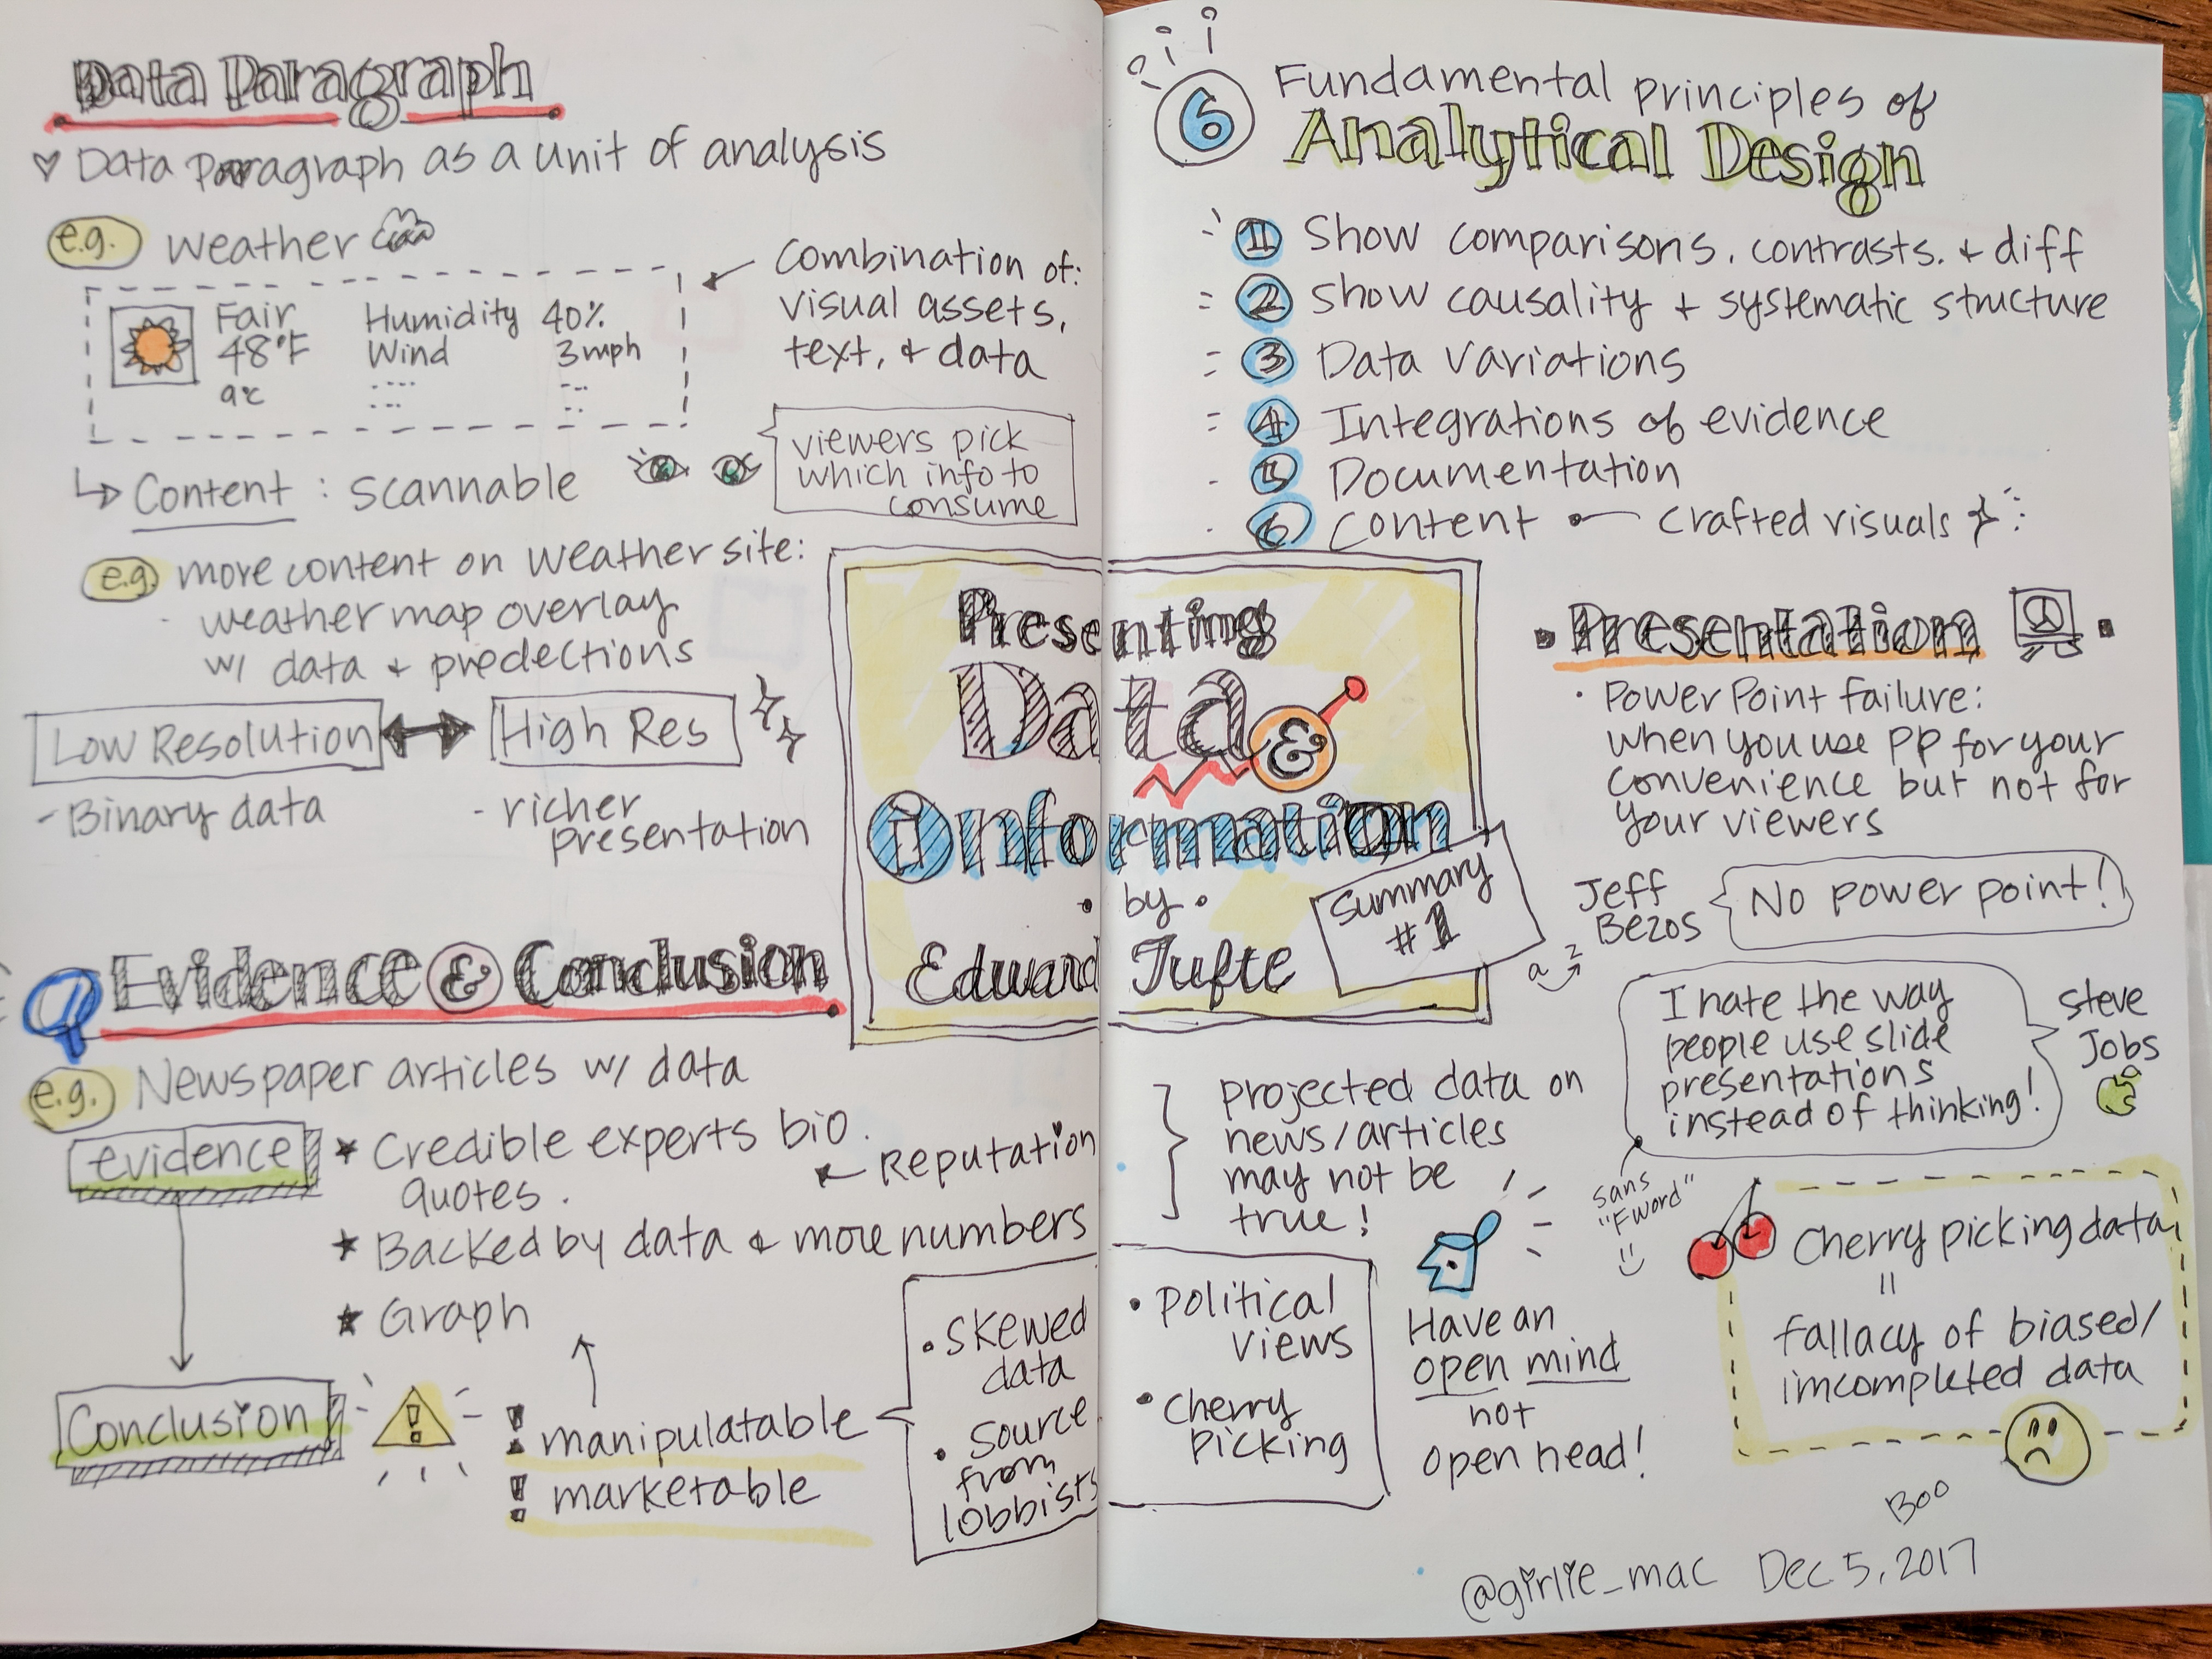 Data Paragraph
Data Paragraph as a unit of analysis
e.g. Weather
Fair Humidity 40%
48°F Wind 3mph
9°C
Combination of:
visual assets,
text, & data
Content : scannable
viewers pick
which info to
consume
e.g. more content on weather site:
- weather map overlay
w/ data & predections
Low Resolution
High Res
- Binary data
- richer
presentation
Evidence & Conclusion
e.g. Newspaper articles w/ data
evidence
★ Credible experts bio.
quotes.
Reputation
★ Backed by data & more numbers
★ Graph
Conclusion
!
! manipulatable
! marketable
• Skewed
data
• Source
from
lobbists
Presenting
Data &
Information
• by •
Edward Tufte
Summary
#1
6 Fundamental principles of
Analytical Design
1 Show comparisons, contrasts, & diff
2 Show causality + systematic structure
3 Data variations
4 Integrations of evidence
5 Documentation
6 Content • Crafted visuals
• Presentation •
• PowerPoint failure:
when you use PP for your
convenience but not for
your viewers
Jeff
Bezos
No power point!
a z
I hate the way
people use slide
presentations
instead of thinking!
Steve
Jobs
sans
"F word"
projected data on
news/articles
may not be
true!
• political
views
• Cherry
picking
Have an
open mind
not
open head!
Cherry picking data
=
fallacy of biased/
imcompleted data
Boo
@girlie_mac Dec 5, 2017